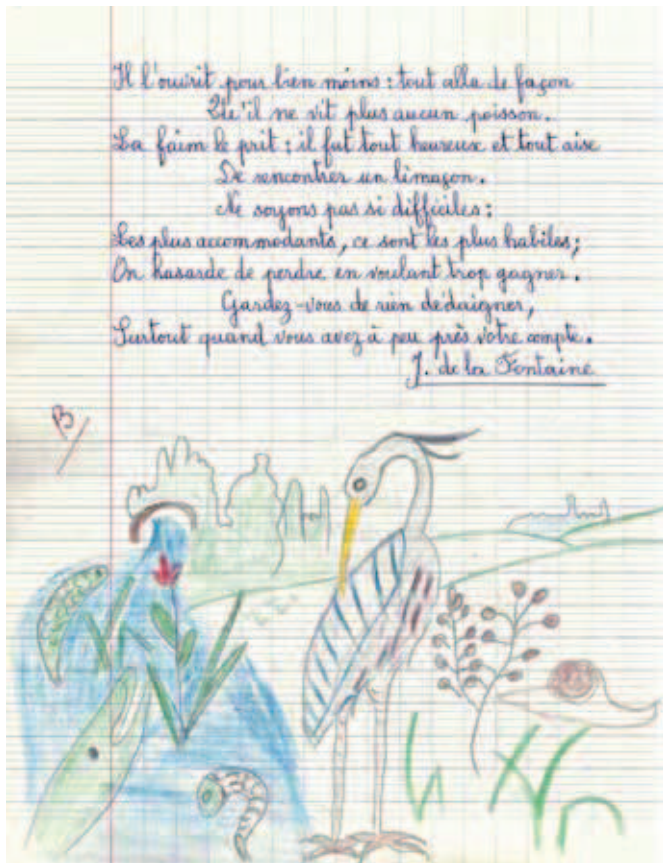 Il l'ouvrit pour bien moins : tout alla de façon
Qu'il ne vit plus aucun poisson.
La faim le prit : il fut tout heureux et tout aise
De rencontrer un limaçon.
Ne soyons pas si difficiles :
Les plus accommodants, ce sont les plus habiles ;
On hasarde de perdre en voulant trop gagner.
Gardez-vous de rien dédaigner,
Surtout quand vous avez à peu près votre compte.
J. de la Fontaine
B